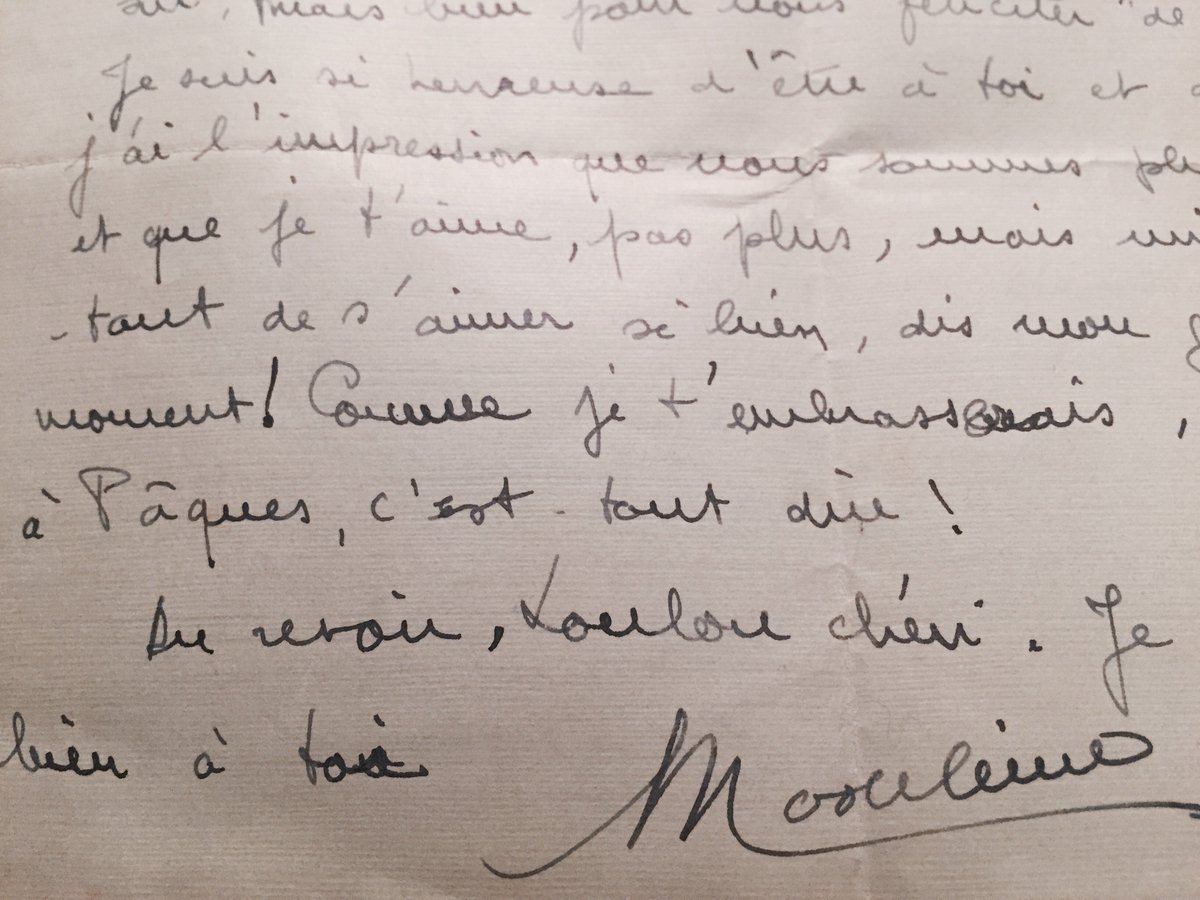 mais bien pour nous féliciter "de
Je suis si heureuse d'être à toi et
j'ai l'impression que nous sommes plu
et que je t'aime, pas plus, mais mi
-tant de s'aimer si bien, dis mon g
moment! Comme je t'embrasserais,
à Pâques, c'est tout dire!
Au revoir, Loulou chéri. Je
bien à toi
Madeleine